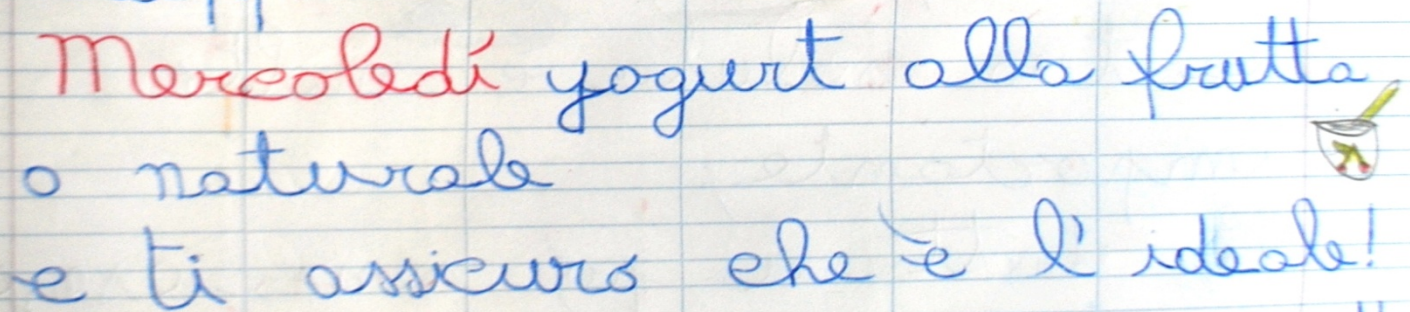 Mercoledì yogurt alla frutta
o naturale
e ti assicuro che è l'ideale!